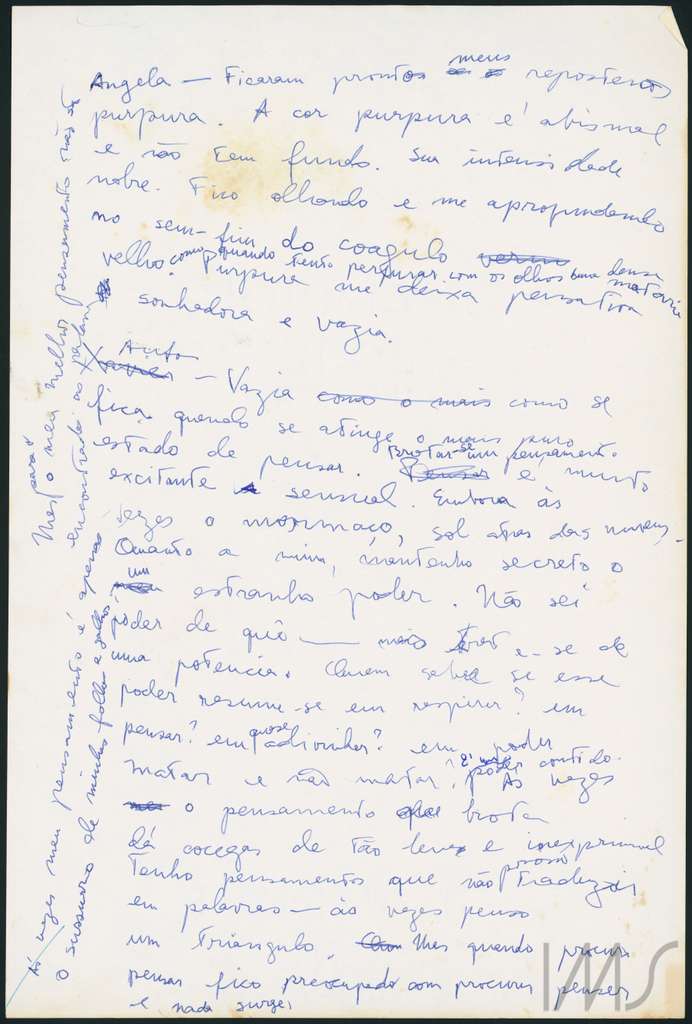 Angela — Ficaram prontos meus reposteros
purpura. A cor purpura é abismal
e não tem fundo. Sua intensidade
nobre. Fico olhando e me aprofundando
no sem-fim do coagulo
velho como quando tento perfurar com os olhos uma densa materia
Purpura me deixa pensativa
sonhadora e vazia.
Autor
— Vazia como o mais como se
fica quando se atinge o mais puro
estado de pensar. Brotar-se um pensamento é muito
excitante sensual. Embora às
vezes o mormaço, sol atras das nuvens.
Quanto a mim, mantenho secreto o
um estranho poder. Não sei
poder de quê — mais trata-se de
uma potencia. Quem sabe se esse
poder resume-se em respirar? em
pensar? em quase adivinhar? em poder
matar e não matar? poder contido.
Às vezes
o pensamento que brota
dá cocegas de tão leve e inexprimivel
Tenho pensamentos que não posso traduzir
em palavras — às vezes penso
um triangulo. Mas quando procuro
pensar fico preocupado com procurar pensar
e nada surge.
Às vezes meu pensamento é apenas
o sussurro de minhas folhas e galhos.
Mas para o meu melhor pensamento não são
encontradas as palavras